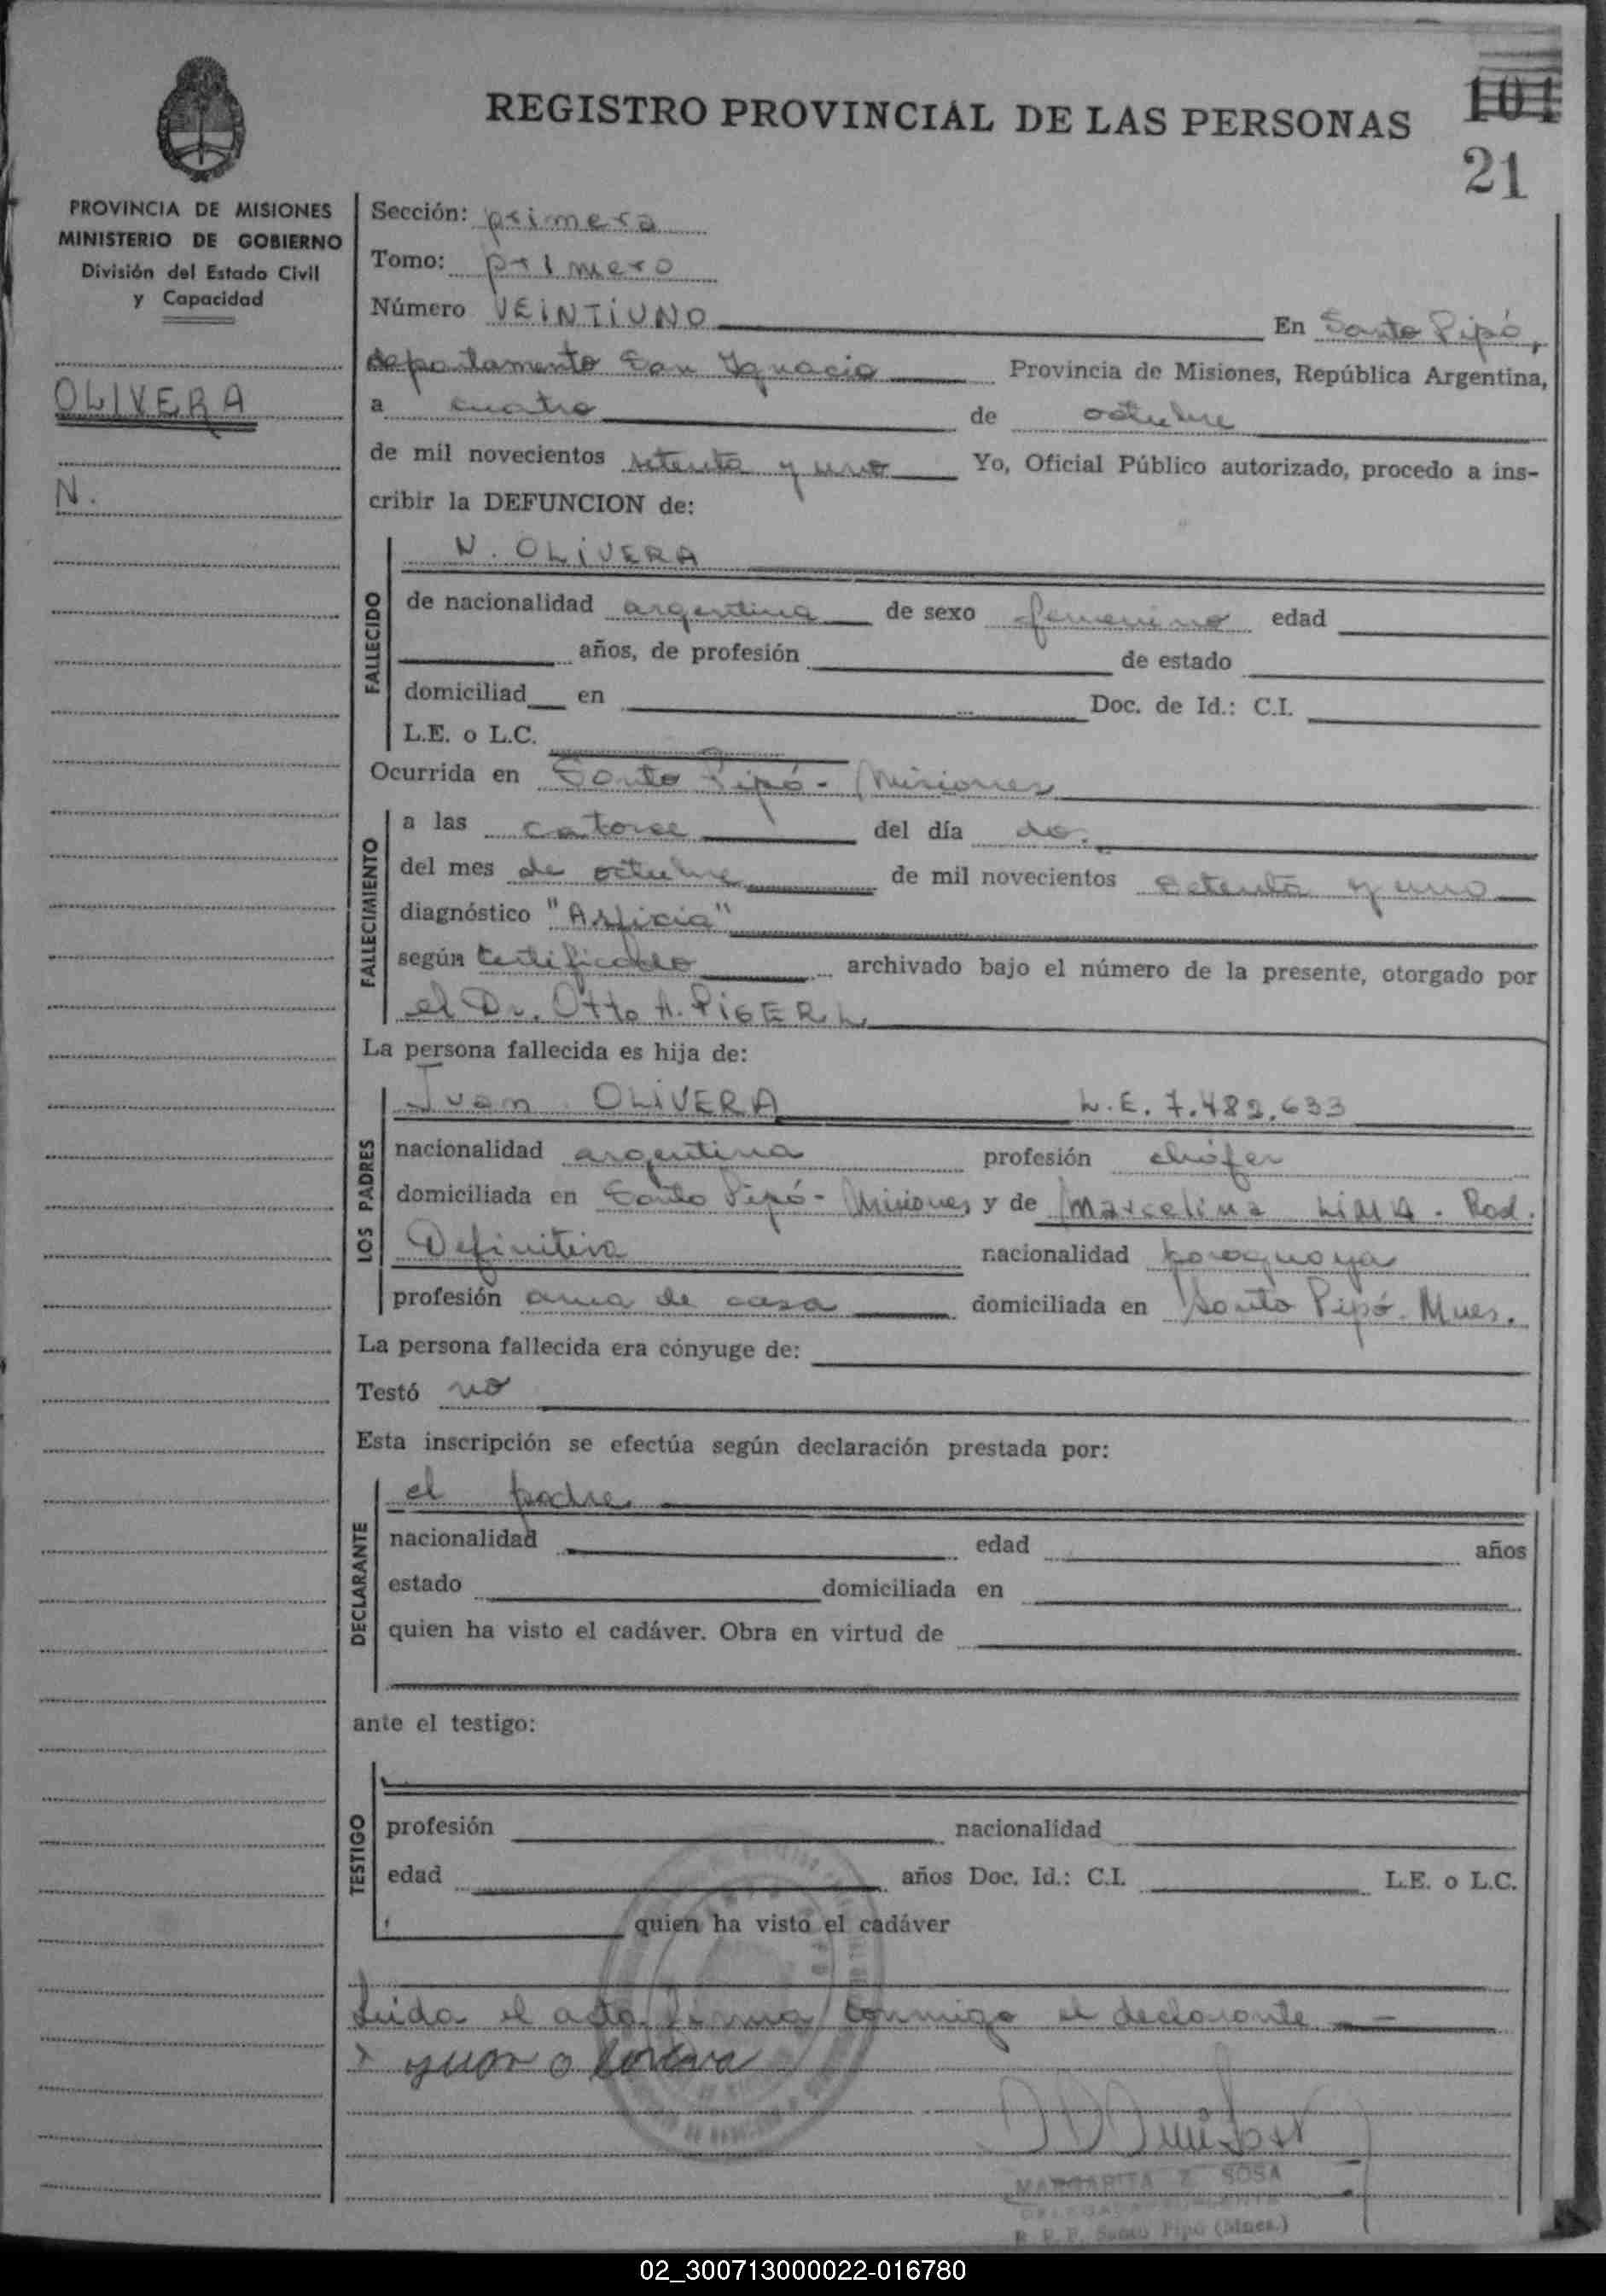 REGISTRO PROVINCIAL DE LAS PERSONAS
101
21
PROVINCIA DE MISIONES
MINISTERIO DE GOBIERNO
División del Estado Civil
y Capacidad
OLIVERA
N.
Sección: primera
Tomo: primero
Número VEINTIUNO En Santo Pipó,
departamento San Ignacio Provincia de Misiones, República Argentina,
a cuatro de octubre
de mil novecientos setenta y uno Yo, Oficial Público autorizado, procedo a ins-
cribir la DEFUNCION de:
FALLECIDO
N. OLIVERA
de nacionalidad argentina de sexo femenino edad
años, de profesión de estado
domiciliad en Doc. de Id.: C.I.
L.E. o L.C.
Ocurrida en Santo Pipó - Misiones
FALLECIMIENTO
a las catorce del día
del mes de octubre de mil novecientos setenta y uno
diagnóstico "Asficia"
según certificado archivado bajo el número de la presente, otorgado por
el Dr. Otto A. PIGERL
La persona fallecida es hija de:
LOS PADRES
Juan OLIVERA L.E. 7.482.633
nacionalidad argentina profesión chófer
domiciliada en Santo Pipó - Misiones y de Marcelina LIMA - Rad.
Definitiva nacionalidad paraguaya
profesión ama de casa domiciliada en Santo Pipó. Mnes.
La persona fallecida era cónyuge de:
Testó no
Esta inscripción se efectúa según declaración prestada por:
DECLARANTE
el padre
nacionalidad edad años
estado domiciliada en
quien ha visto el cadáver. Obra en virtud de
ante el testigo:
TESTIGO
profesión nacionalidad
edad años Doc. Id.: C.I. L.E. o L.C.
quien ha visto el cadáver
Leida el acta firma conmigo el declarante
MARGARITA Z SOSA
R. P. P. Santo Pipó (Mnes.)
02_300713000022-016780